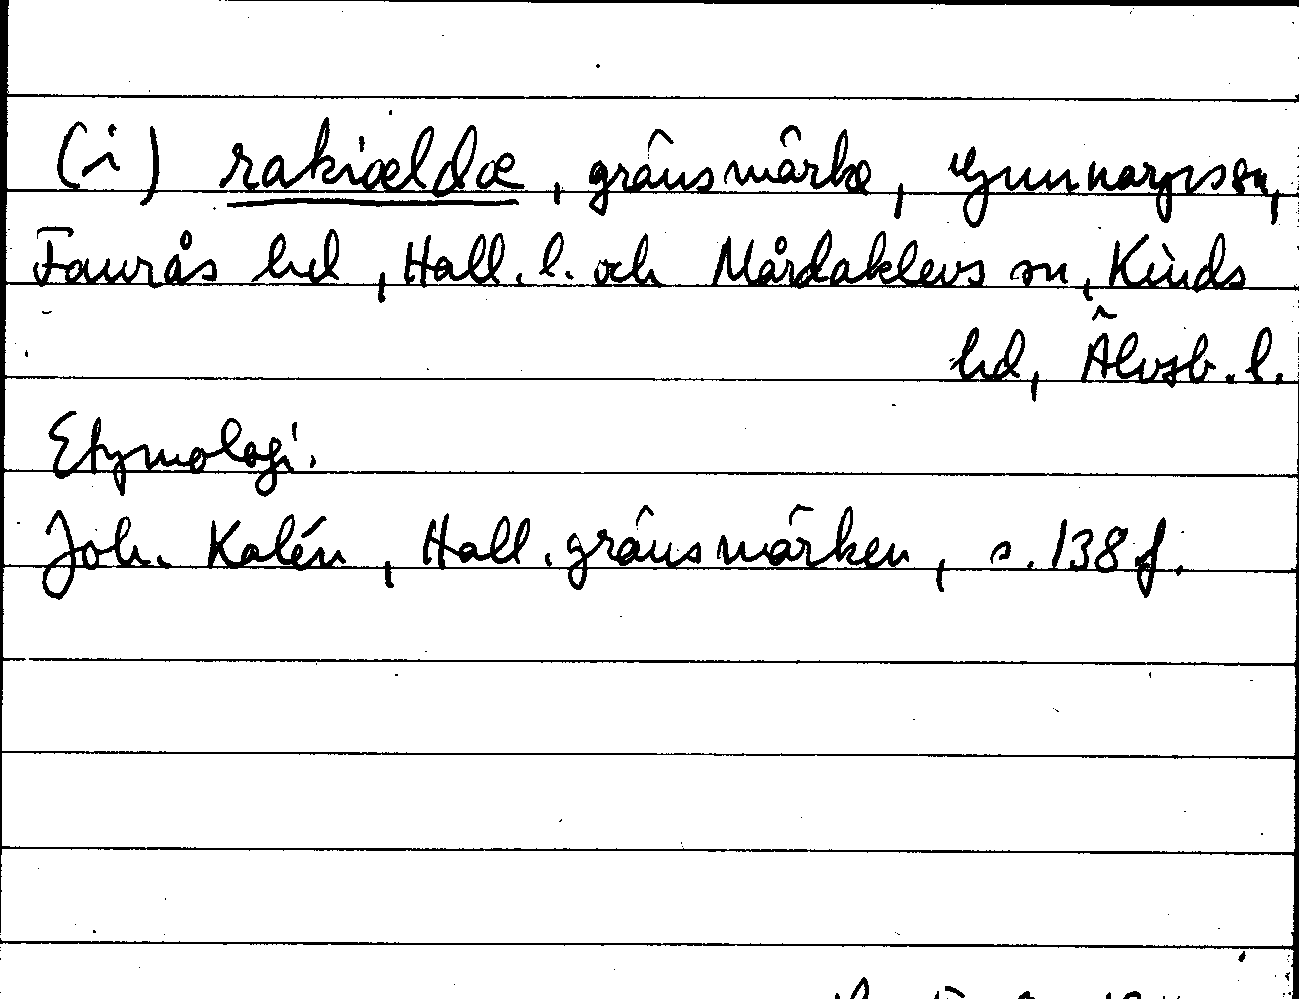 (i) rakiældæ, gränsmärke, Gunnarps sn,
Faurås hd, Hall. l. och Mårdaklevs sn, Kinds
hd, Älvsb. l.
Etymologi.
Joh. Kalén, Hall. gränsmärken, s. 138 f.